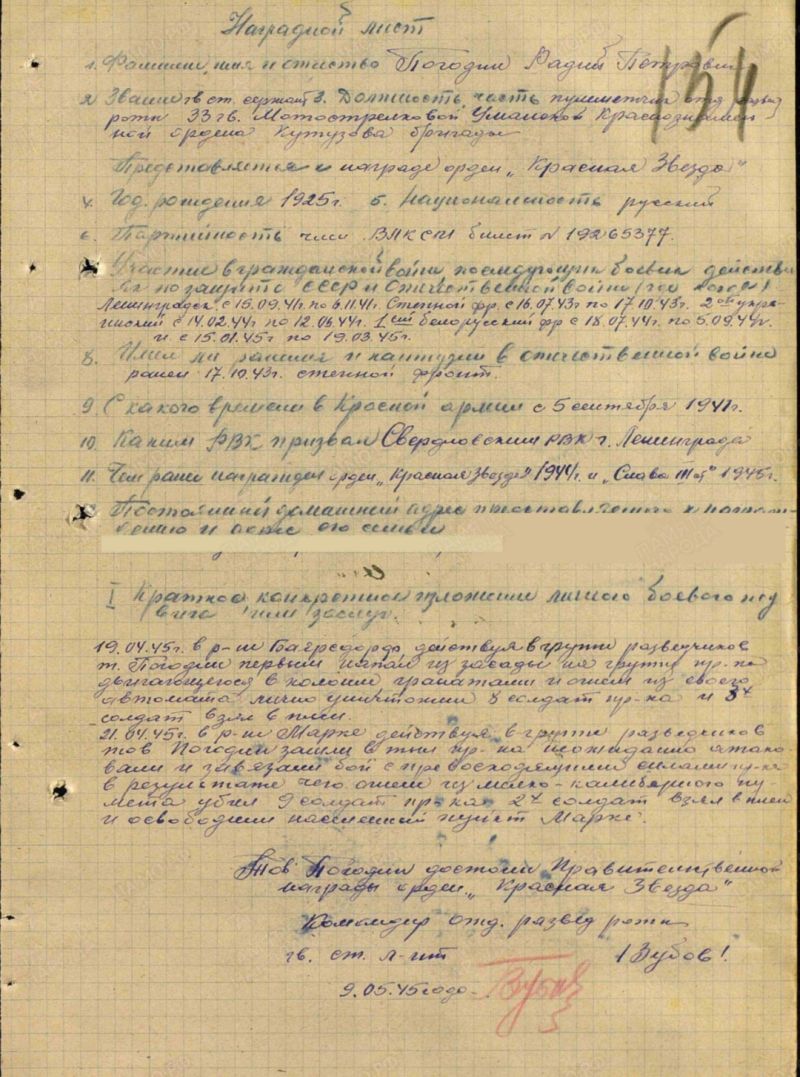 Наградной лист
154
1. Фамилия, имя и отчество Погодин Радий Петрович
2. Звание гв ст. сержант 3. Должность, часть пулеметчик отд. развед
роты 33 гв. Мотострелковой Уманской Краснознамен
ной ордена Кутузова бригады
Представляется к награде орден „Красная Звезда"
4. Год. рождения 1925г. 5. Национальность русский
6. Партийность член ВЛКСМ билет № 19265377.
Участие в гражданской войне последующих боевых действи
ях по защите СССР и отечественной войне (где когда)
Ленинградск. с 15.09.41г. по 6.11.41г. Степной фр. с 16.07.43г по 17.10.43г. 2ой укра-
инский с 14.02.44г по 12.06.44г. 1ый белорусский фр с 18.07.44г. по 5.09.44г.
и с 15.01.45г по 19.03.45г.
8. Имел ли ранения и контузии в отечественной войне
ранен 17.10.43г. степной фронт.
9. С какого времени в Красной армии с 5 сентября 1941г.
10. Каким РВК призван Свердловским РВК г. Ленинграда
11. Чем ранее награжден орден „Красная Звезда" 1944г. и „Слава III ст" 1945г.
Постоянный домашний адрес представляемого к награж-
дению и адрес его семьи
I Краткое конкретное изложение личного боевого под
вига или заслуг.
19.04.45г. в р-не действуя в группе разведчиков
т. Погодин первым напал из засады на группу пр-ка
двигающегося в колонне гранатами и огнем из своего
автомата лично уничтожил 8 солдат пр-ка и 3х
солдат взял в плен.
21.04.45г. в р-не Марке действуя в группе разведчиков
тов Погодин зашли в тыл пр-ка неожиданно атако-
вали и завязали бой с превосходящими силами пр-ка
в результате чего огнем из мелко-калиберного пу
лемета убил 9 солдат пр-ка 2х солдат взял в плен
и освободили населенный пункт Марке.
Тов Погодин достоин Правительственной
награды орден „Красная Звезда"
Командир отд. развед роты
гв. ст. л-нт /Зубов/.
9.05.45 года -